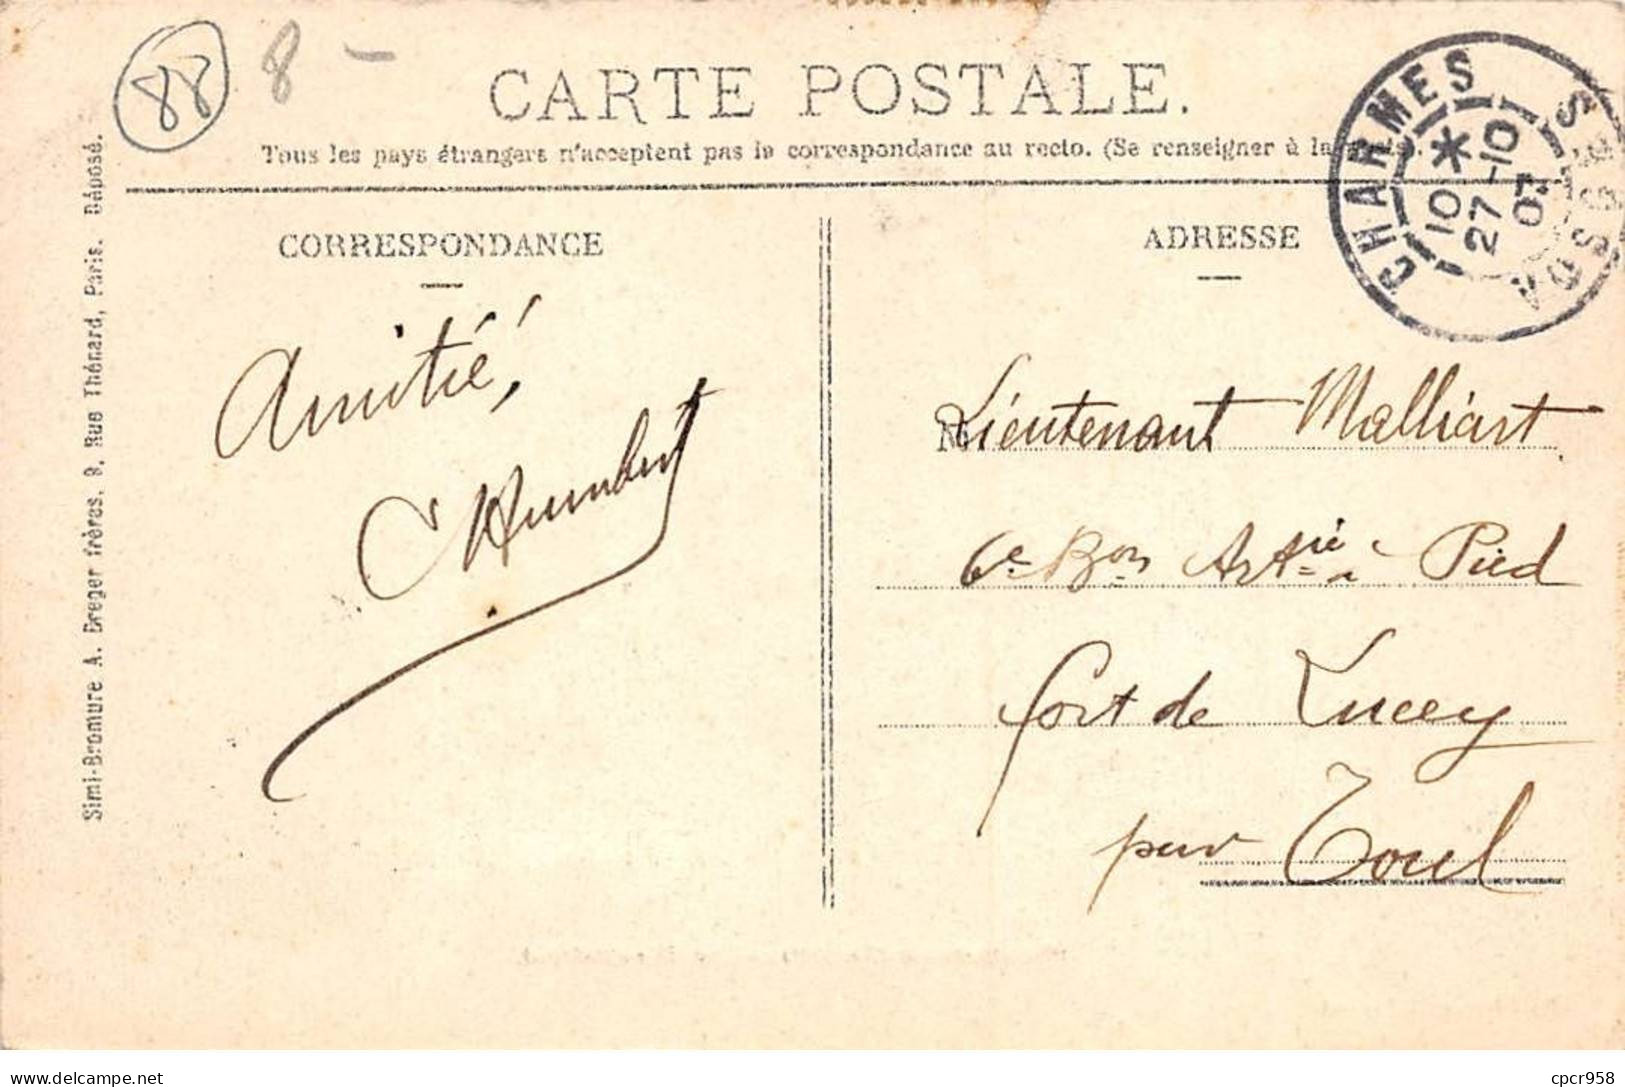 88
8 -
CARTE POSTALE.
Tous les pays étrangers n'acceptent pas la correspondance au recto. (Se renseigner à la
CHARMES
10 *
27-10
07
VOSGES
CORRESPONDANCE
ADRESSE
Amitié,
Humbert
M
Lieutenant Malliart
6e Bon Artie à Pied
fort de Lucey
par Toul
Simi-Bromure A. Breger frères. 9, Rue Thénard, Paris. Déposé.
delcampe.net
cpcr958